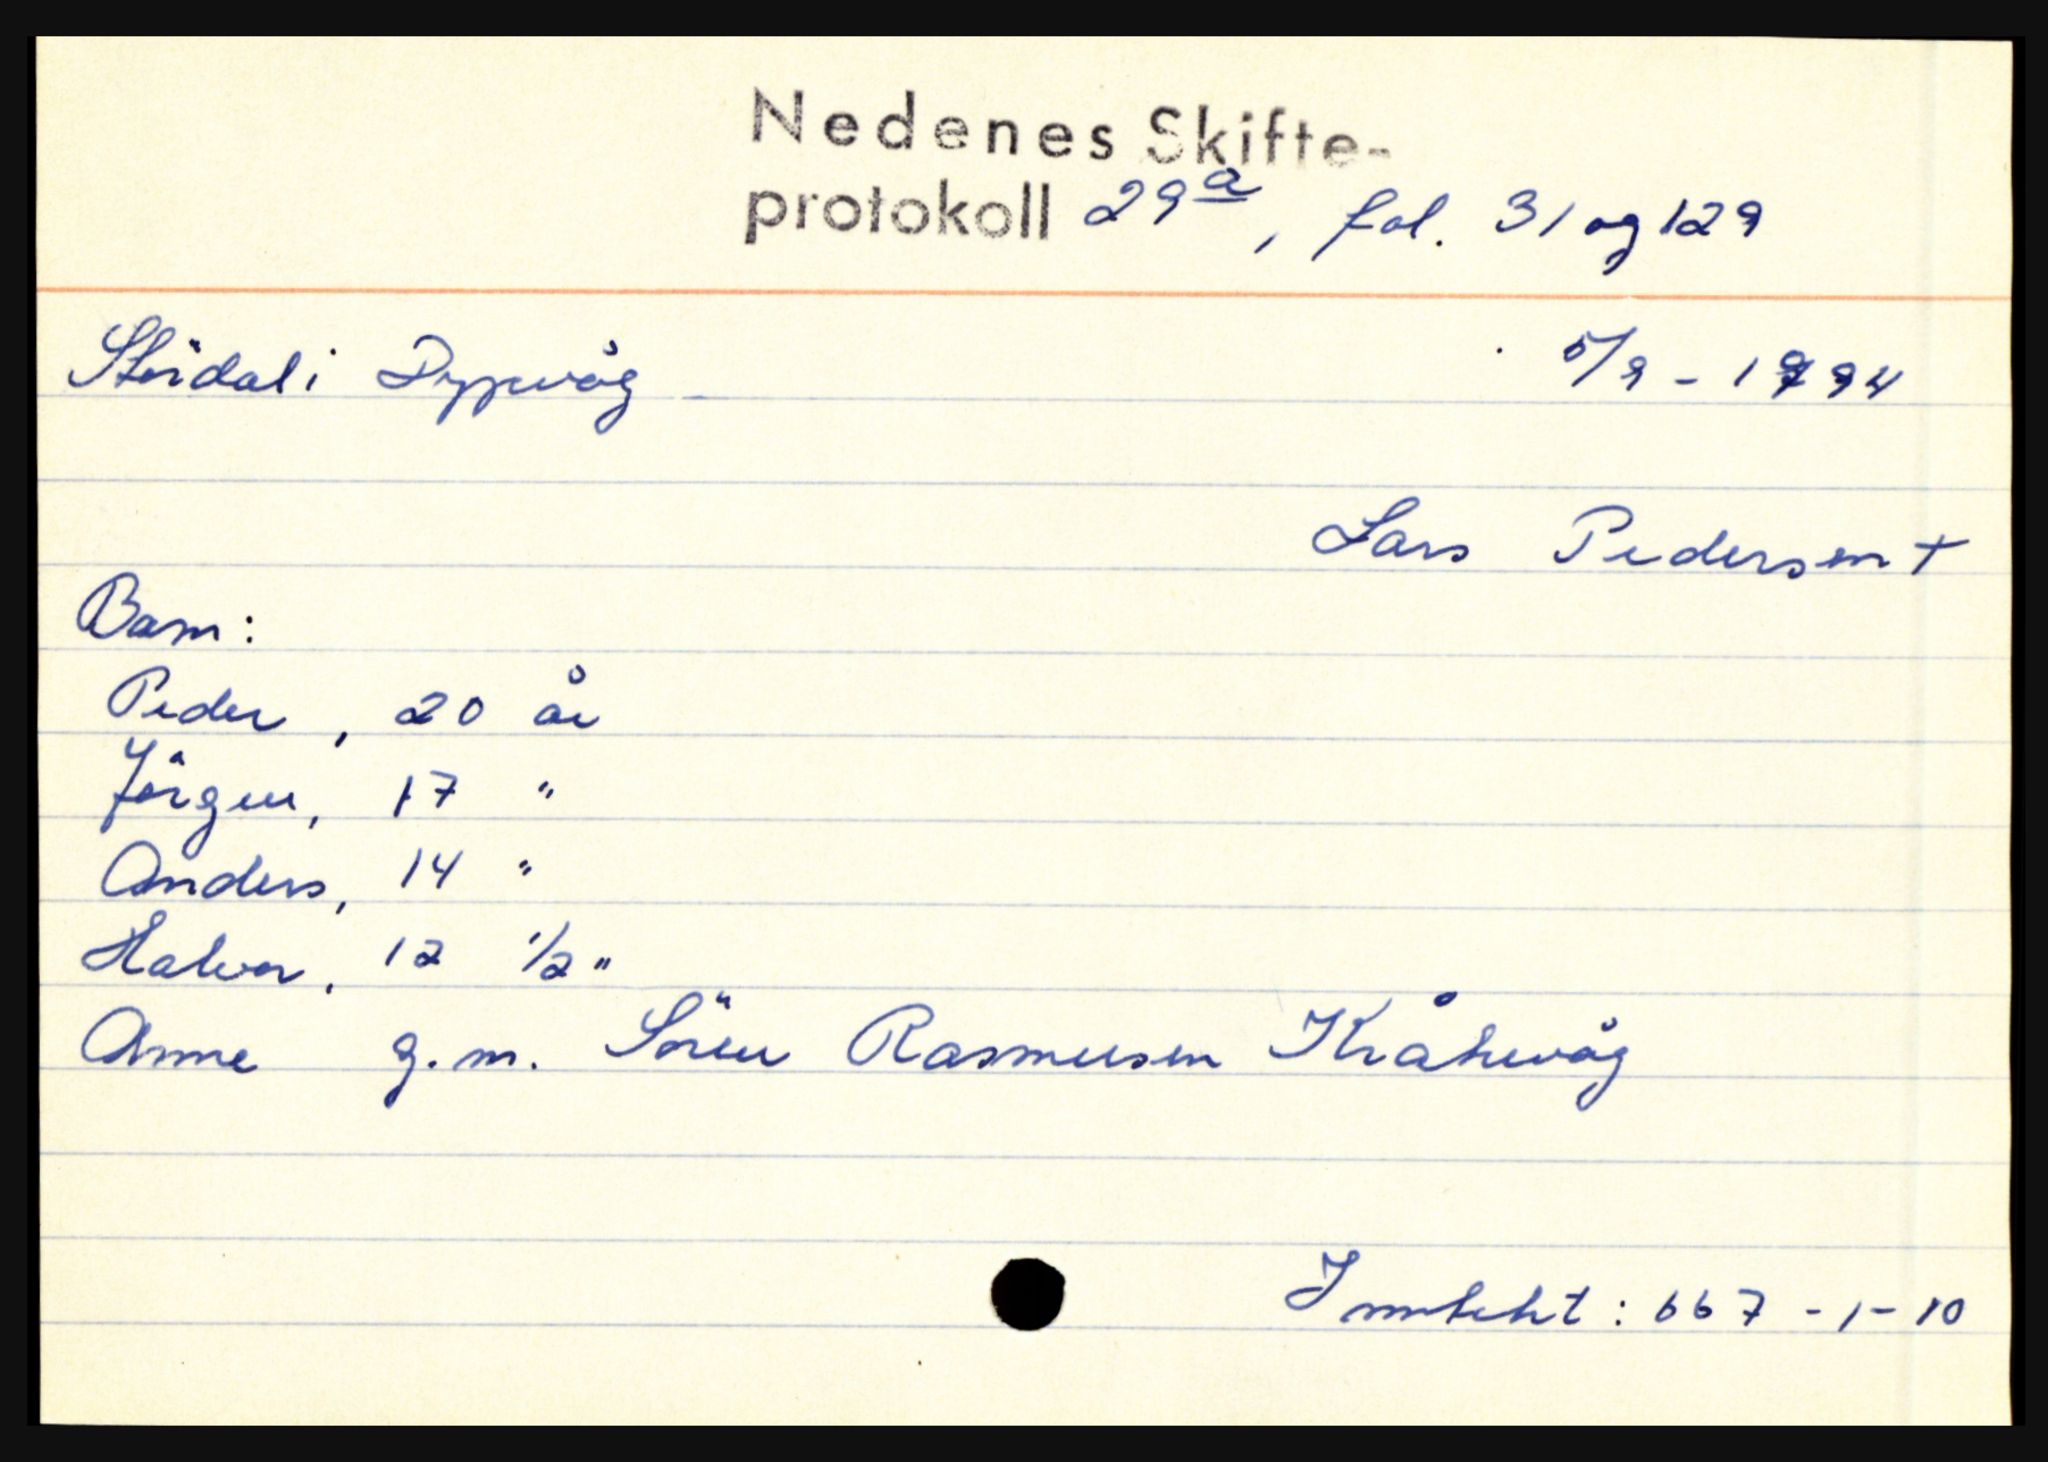 Nedenes Skifte-
protokoll 29a, fol. 31 og 129
Stördal i Dypvåg 5/9 - 1794
Lars Pedersen +
Barn:
Peder, 20 år
Jörgen, 17 "
Anders, 14 "
Halvor, 12 1/2 "
Anne g.m. Sören Rasmussen Kråkevåg
Inntekt: 667 - 1 - 10